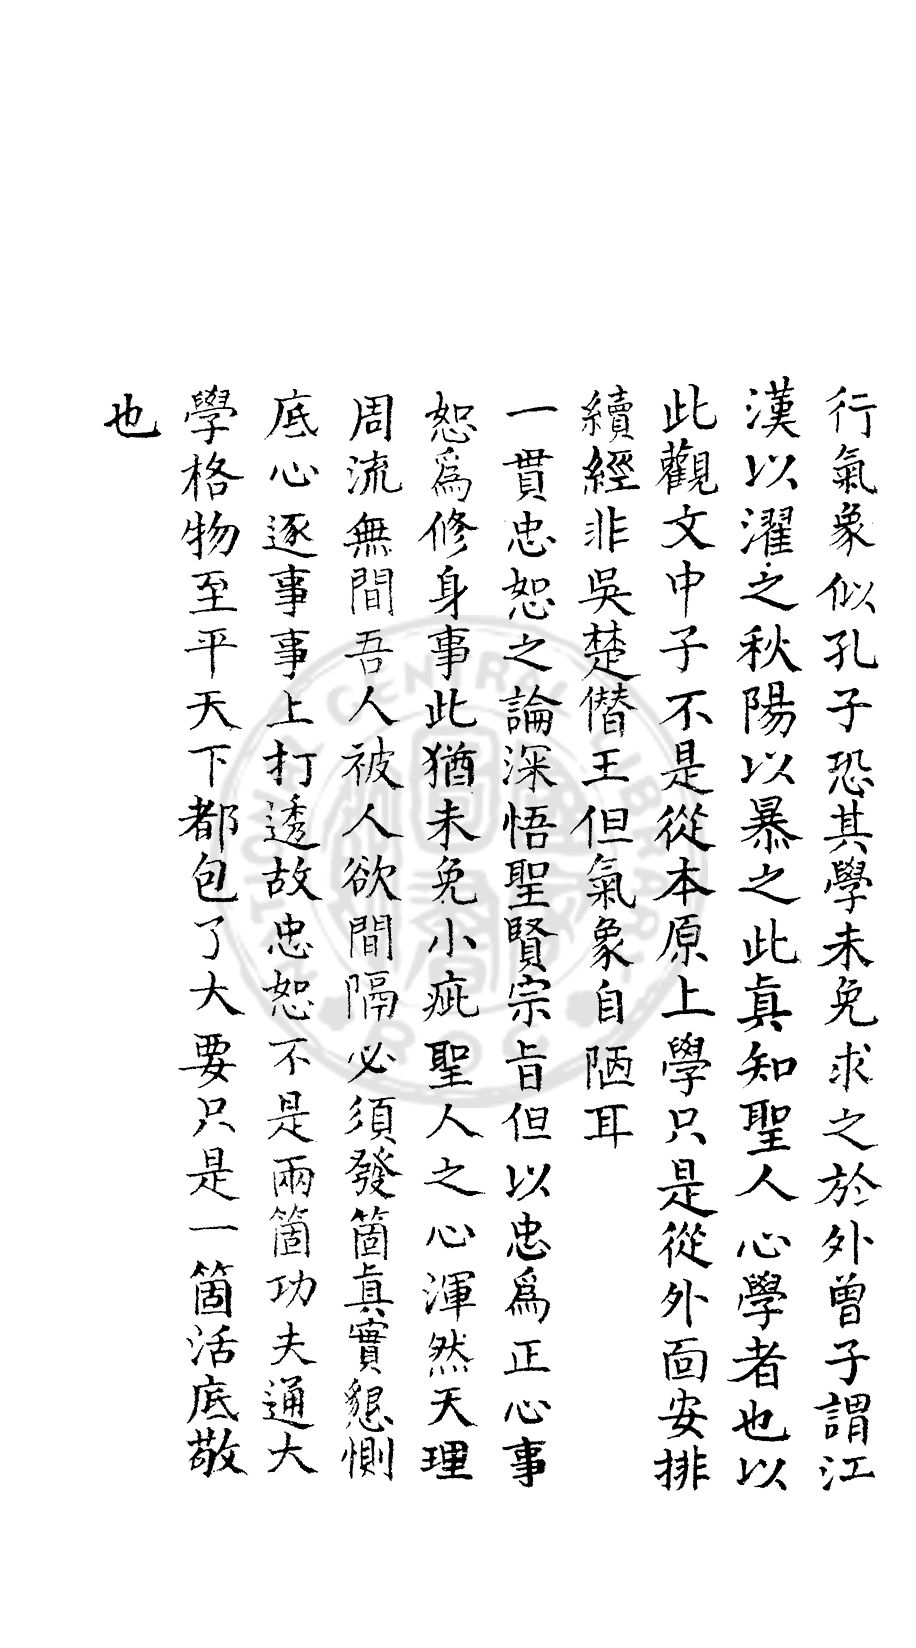 行氣象似孔子恐其學未免求之於外曾子謂江
漢以濯之秋陽以暴之此眞知聖人心學者也以
此觀文中子不是從本原上學只是從外面安排
續經非吳楚僭王但氣象自陋耳
一貫忠恕之論深悟聖賢宗旨但以忠爲正心事
恕爲修身事此猶未免小疵聖人之心渾然天理
周流無間吾人被人欲間隔必須發箇眞實懇惻
底心逐事事上打透故忠恕不是兩箇功夫通大
學格物至平天下都包了大要只是一箇活底敬
也